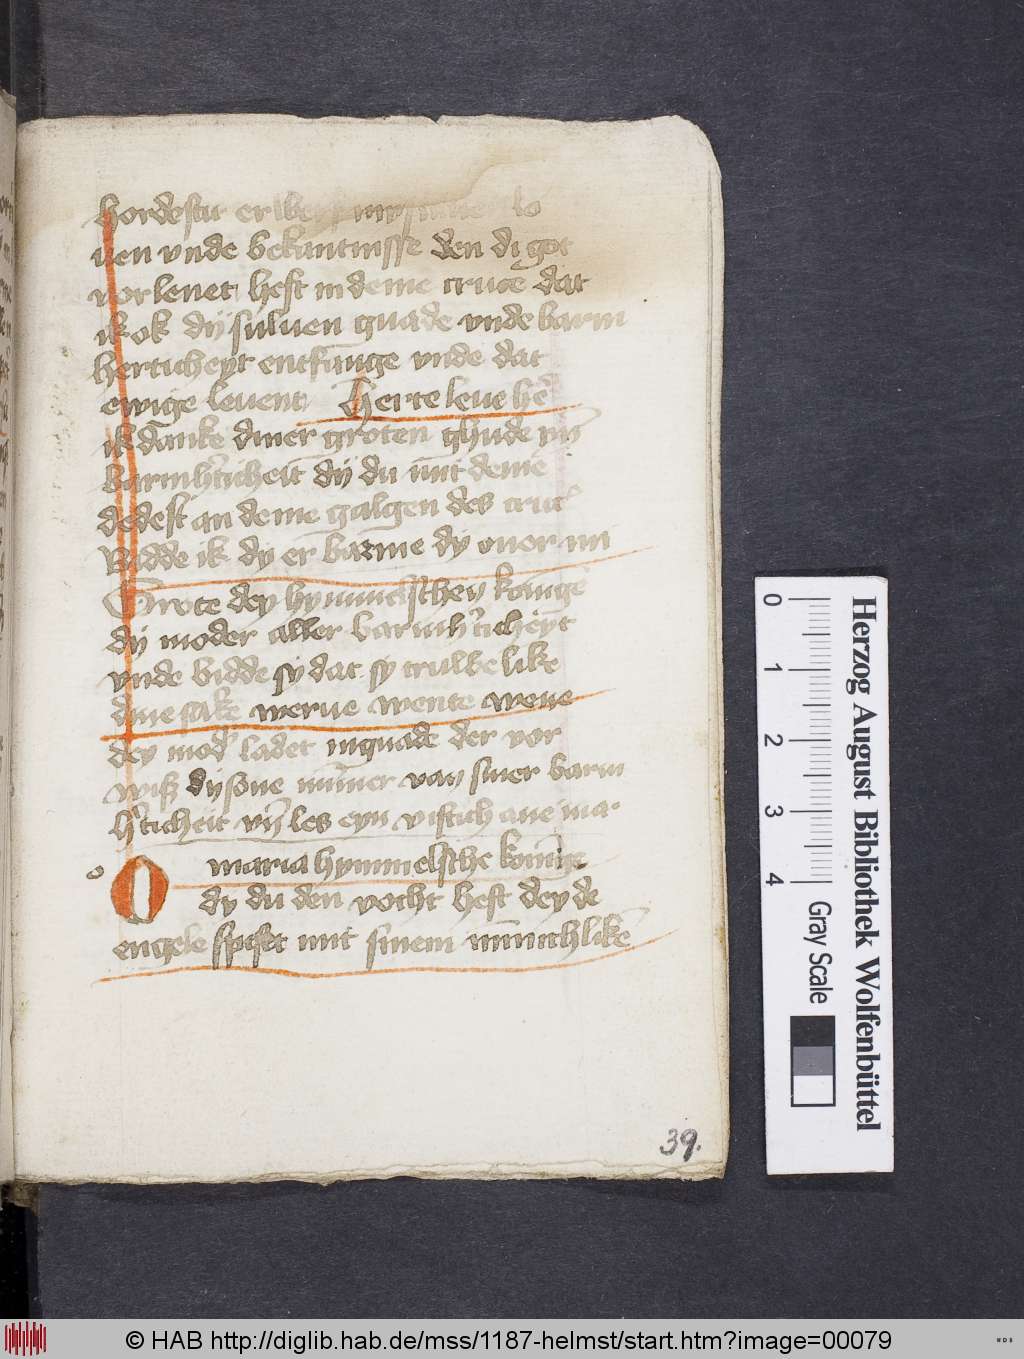 hordestu
uen vnde bekantnisse den di got
vor lenet heft in deme cruce dat
ik ok dÿ suluen gnade vnde barm
herticheyt entfange vnde dat
ewige leuent Herte leue hē
ik danke diner groten ghude vn̄
barmhˀticheit dÿ du mit deme
dedest an deme galgen des cruc
Bidde ik dy er barme dy ouor mi
Grote dey hymmelschen konīge
dÿ moder aller barmhˀticheyt
vnde bidde sy dat sy truwe like
dine sake werue wente weue
dey modˀ ladet in gnade der vor
wisz dy sone nūmer van siner barm
hˀticheit vn̄ les eyn vlitich aue ma·
o O maria hymmelsche konīge
dy du den vocht heft dey de
engele spiset mit sinem mīnichlikē
39.
Herzog August Bibliothek Wolfenbüttel
Gray Scale
0
1
2
3
4
© HAB http://diglib.hab.de/mss/1187-helmst/start.htm?image=00079